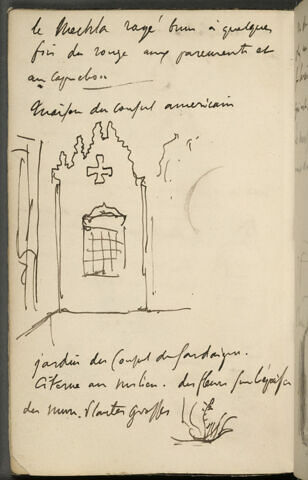 le Mechla rayé brun a quelques
fois du rouge aux parements et
au capuchon
Maison du consul americain
jardin du Consul de Sardaigne.
Citerne au milieu. des fleurs sur l'épaisseur
des murs. Plantes grasses